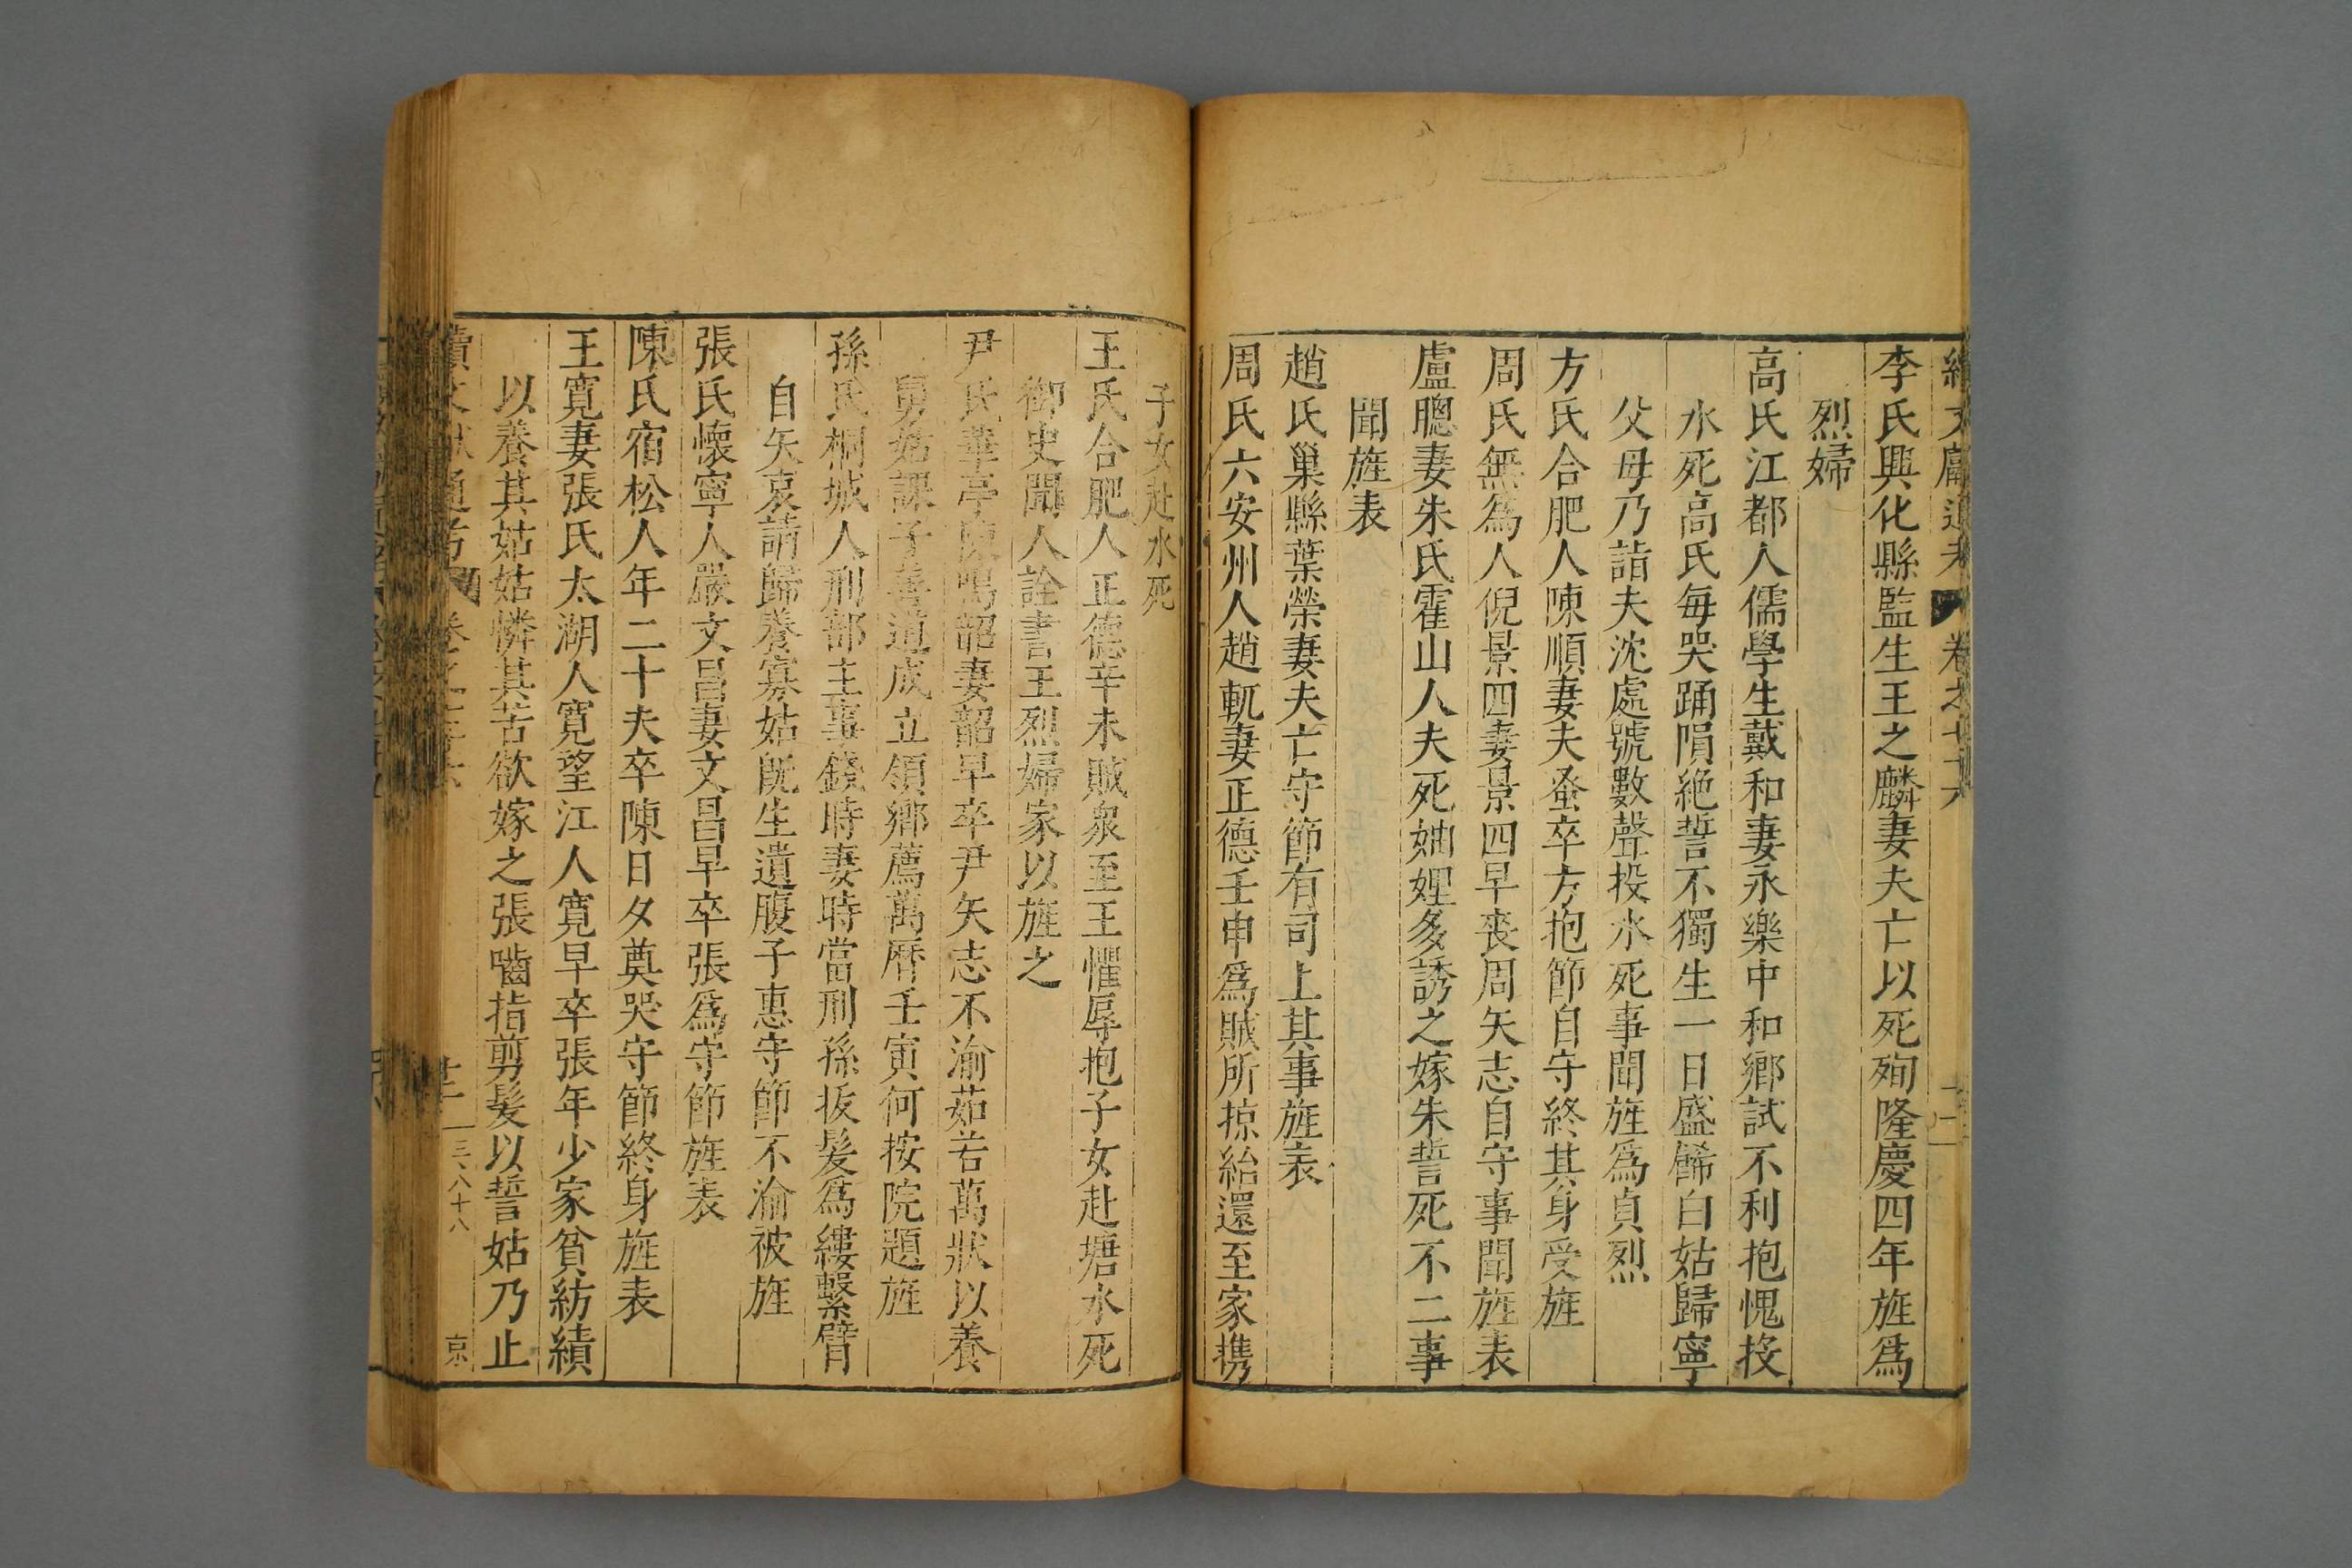 李氏興化縣監生王之麟妻夫亡以死殉隆慶四年旌爲
烈婦
高氏江都人儒學生戴和妻永樂中和鄉試不利抱愧投
水死高氏每哭踊隕絶誓不獨生一日盛餙白姑歸寧
父母乃詣夫沈處號數聲投水死事聞旌爲貞烈
方氏合肥人陳順妻夫蚤卒方抱節自守終其身受旌
周氏無爲人倪景四妻景四早喪周矢志自守事聞旌表
盧聰妻朱氏霍山人夫死妯娌多誘之嫁朱誓死不二事
聞旌表
趙氏巢縣葉榮妻夫亡守節有司上其事旌表
周氏六安州人趙軏妻正德壬申爲賊所掠紿還至家携
子女赴水死
王氏合肥人正德辛未賊衆至王懼辱抱子女赴塘水死
御史聞人詮書王烈婦家以旌之
尹氏華亭陳鳴韶妻韶早卒尹矢志不渝茹苦萬狀以養
舅姑課子善道成立領鄉薦萬曆壬寅何按院題旌
孫氏桐城人刑部主事錢時妻時當刑孫抜髮爲縷繫臂
自矢哀請歸養寡姑旣生遺腹子惠守節不渝被旌
張氏懷寧人嚴文昌妻文昌早卒張爲守節旌表
陳氏宿松人年二十夫卒陳日夕奠哭守節終身旌表
王寬妻張氏太湖人寬望江人寬早卒張年少家貧紡績
以養其姑姑憐其苦欲嫁之張嚙指剪髮以誓姑乃止